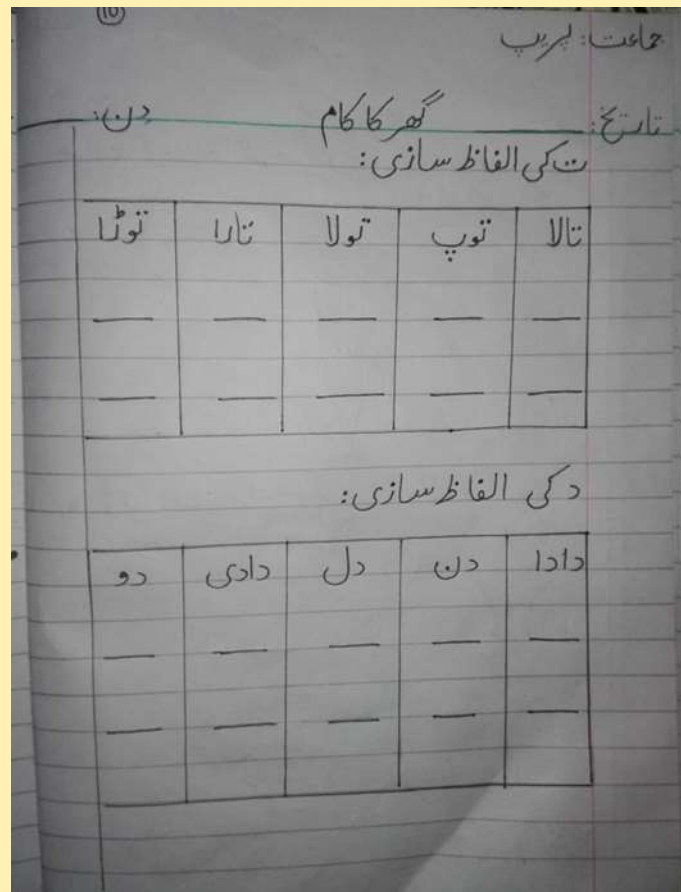 10
جماعت: پریپ
تاریخ: گھر کا کام دن:
ت کی الفاظ سازی:
تالا توپ تولا تارا توڑا
د کی الفاظ سازی:
دادا دن دل دادی دو